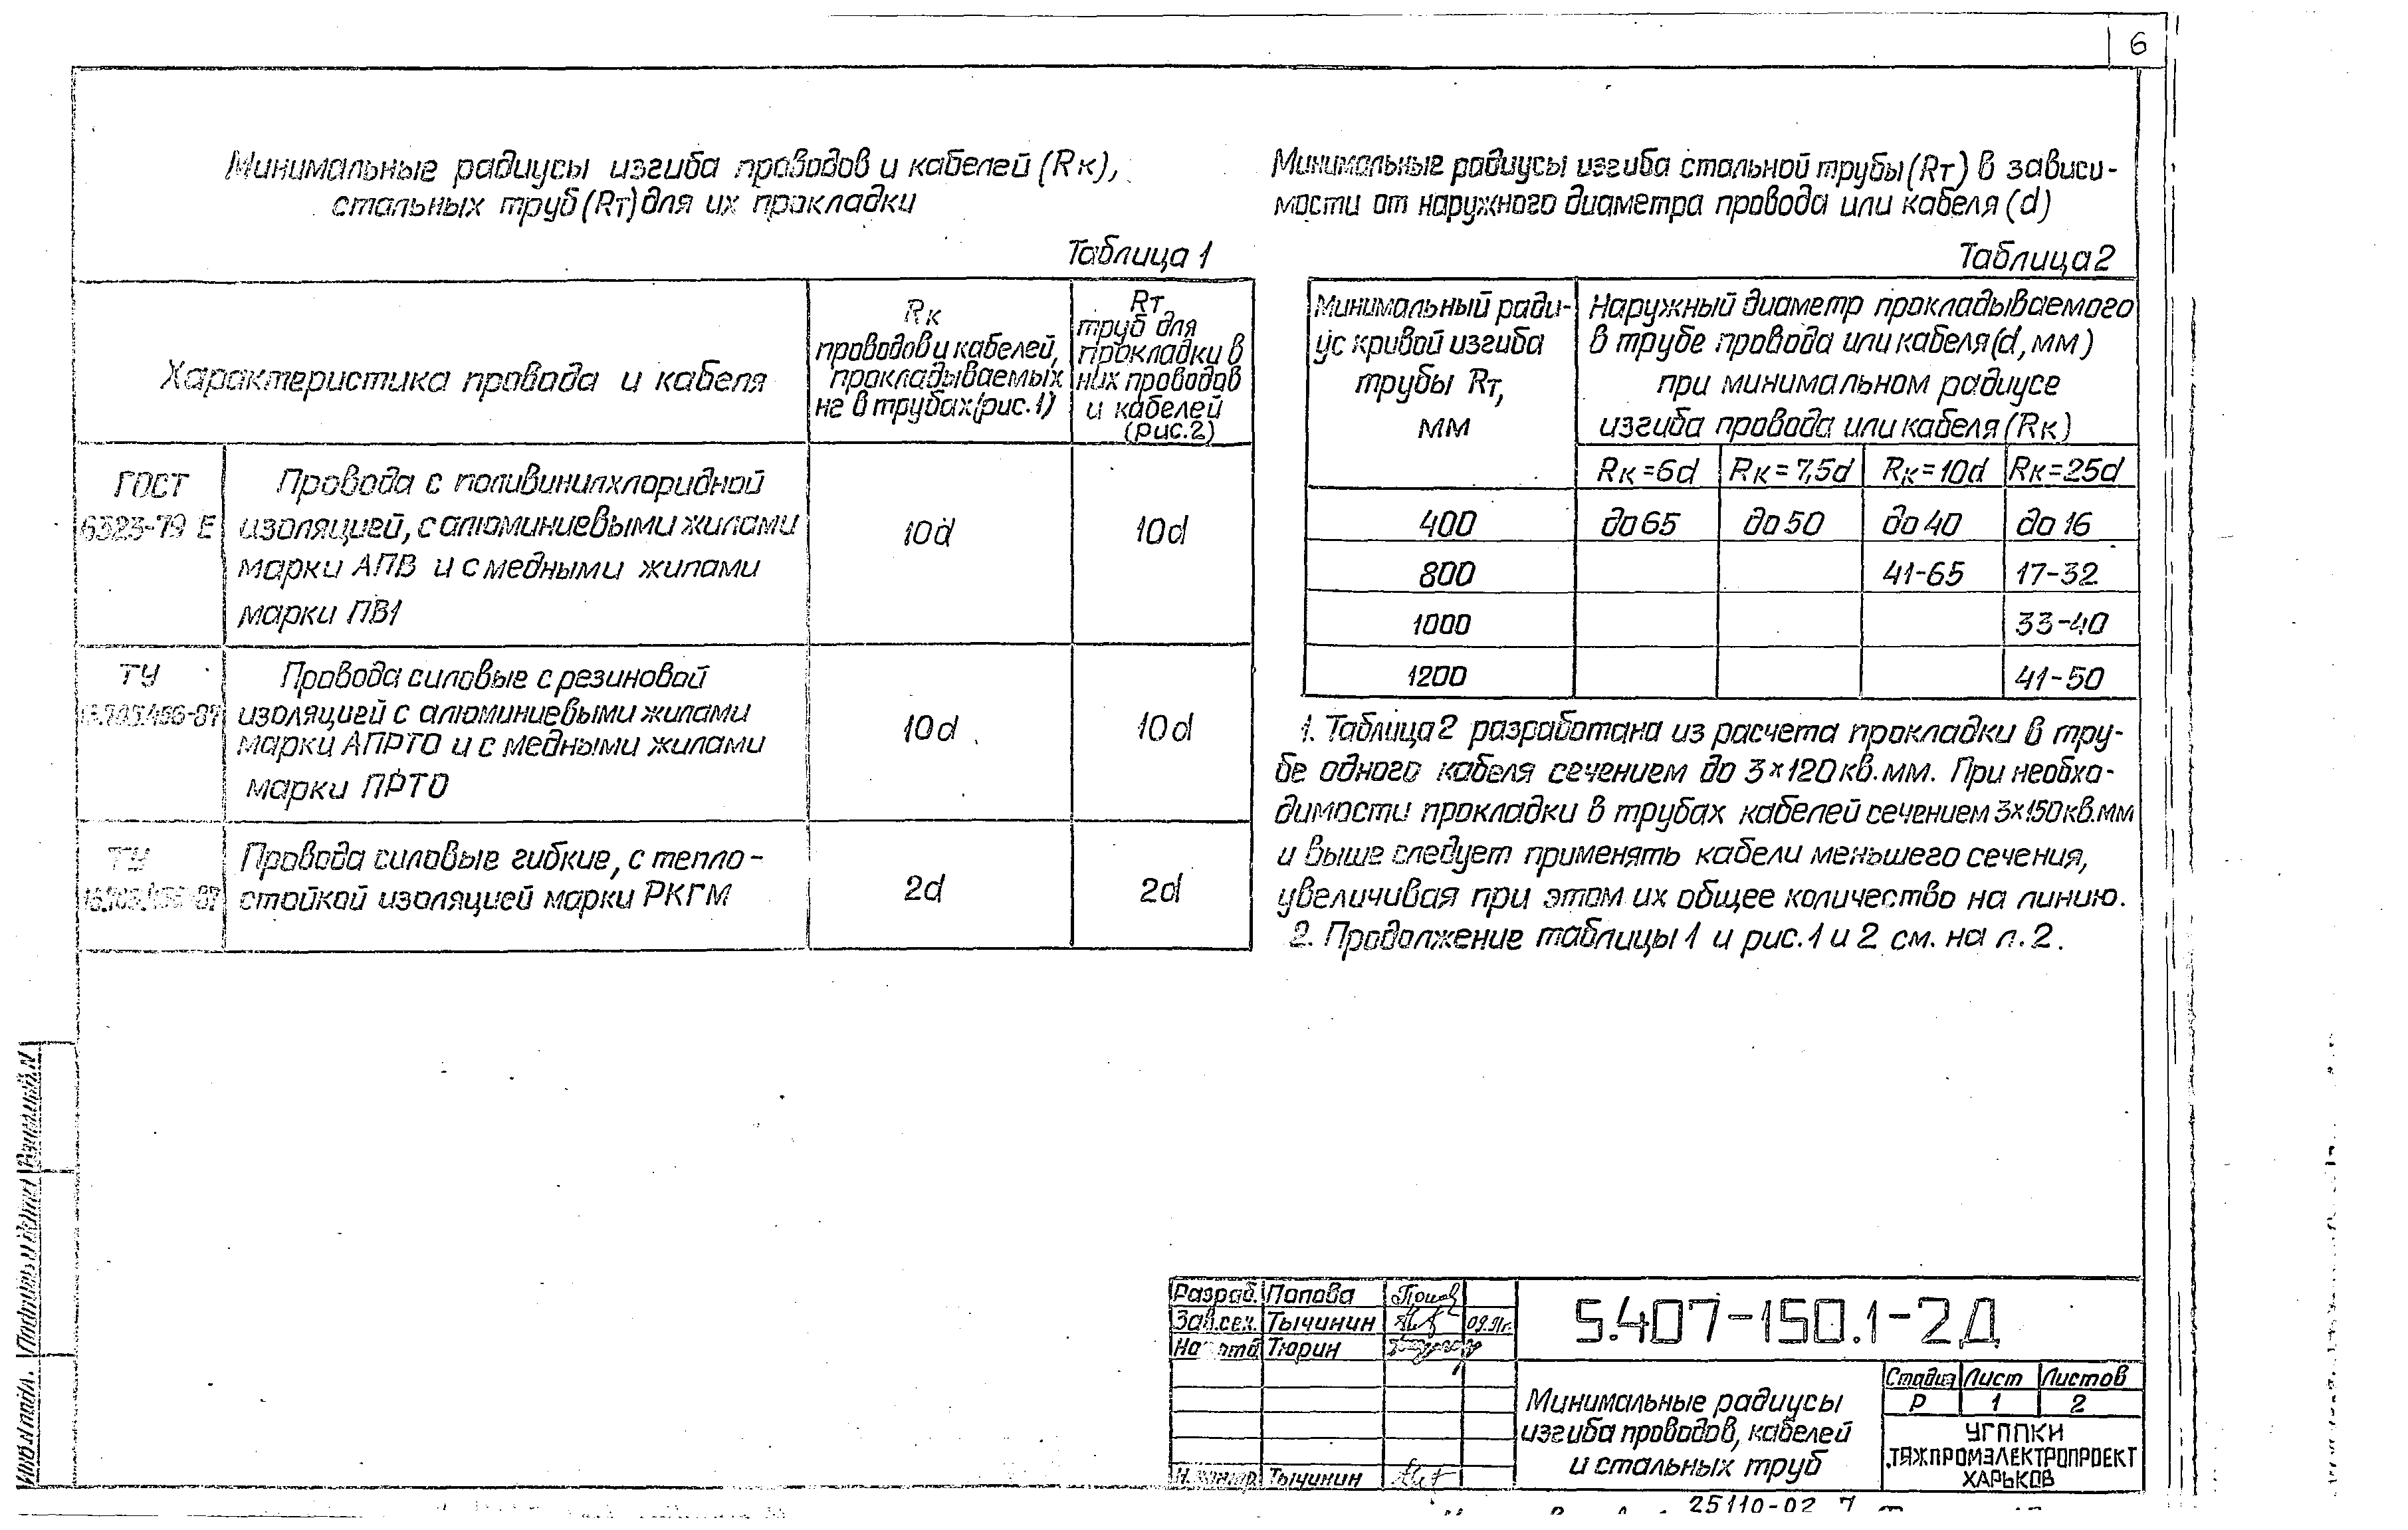 6
Минимальные радиусы изгиба проводов и кабелей (Rк),
стальных труб (Rт) для их прокладки
Таблица 1
Характеристика провода и кабеля
Rк
проводов и кабелей,
прокладываемых
не в трубах (рис. 1)
Rт
труб для
прокладки в
них проводов
и кабелей
(рис. 2)
ГОСТ
6323-79 Е
Провода с поливинилхлоридной
изоляцией, с алюминиевыми жилами
марки АПВ и с медными жилами
марки ПВ1
10d
10d
ТУ
Провода силовые с резиновой
изоляцией с алюминиевыми жилами
марки АПРТО и с медными жилами
марки ПРТО
10d
10d
ТУ
Провода силовые гибкие, с тепло-
стойкой изоляцией марки РКГМ
2d
2d
Минимальные радиусы изгиба стальной трубы (Rт) в зависи-
мости от наружного диаметра провода или кабеля (d)
Таблица 2
Минимальный ради-
ус кривой изгиба
трубы Rт,
мм
Наружный диаметр прокладываемого
в трубе провода или кабеля (d, мм)
при минимальном радиусе
изгиба провода или кабеля (Rк)
Rк=6d Rк=7,5d Rк=10d Rк=25d
400 до 65 до 50 до 40 до 16
800 41-65 17-32
1000 33-40
1200 41-50
1. Таблица 2 разработана из расчета прокладки в тру-
бе одного кабеля сечением до 3×120 кв. мм. При необхо-
димости прокладки в трубах кабелей сечением 3×150 кв. мм
и выше следует применять кабели меньшего сечения,
увеличивая при этом их общее количество на линию.
2. Продолжение таблицы 1 и рис. 1 и 2 см. на л. 2.
Разраб. Попова
Зав. сек. Тычинин 09.91г.
Тюрин
Тычинин
5.407-150.1-2Д
Минимальные радиусы
изгиба проводов, кабелей
и стальных труб
Стадия Лист Листов
Р 1 2
УГППКИ
ТЯЖПРОМЭЛЕКТРОПРОЕКТ
ХАРЬКОВ
Подпись и дата
Инв. № подл.
25110-02 7